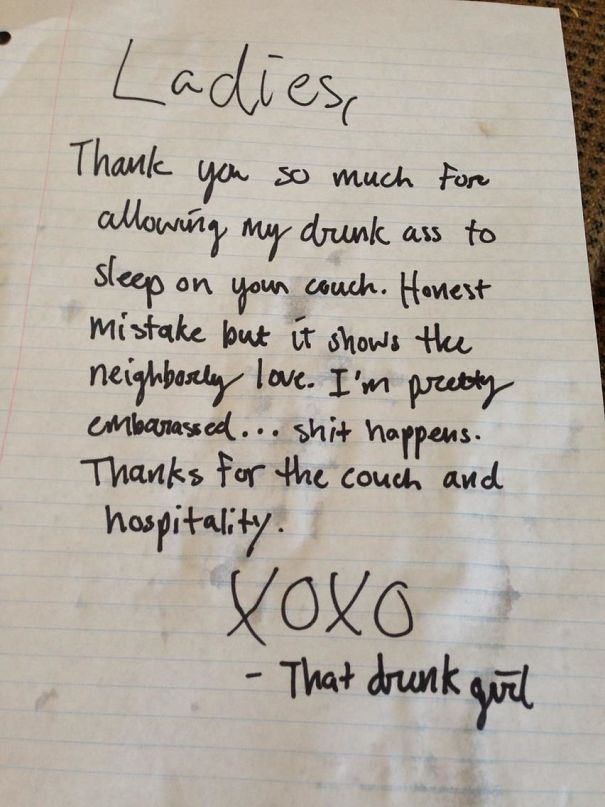 Ladies,
Thank you so much for
allowing my drunk ass to
sleep on your couch. Honest
mistake but it shows the
neighborly love. I'm pretty
embarassed... shit happens.
Thanks for the couch and
hospitality.
XOXO
- That drunk girl